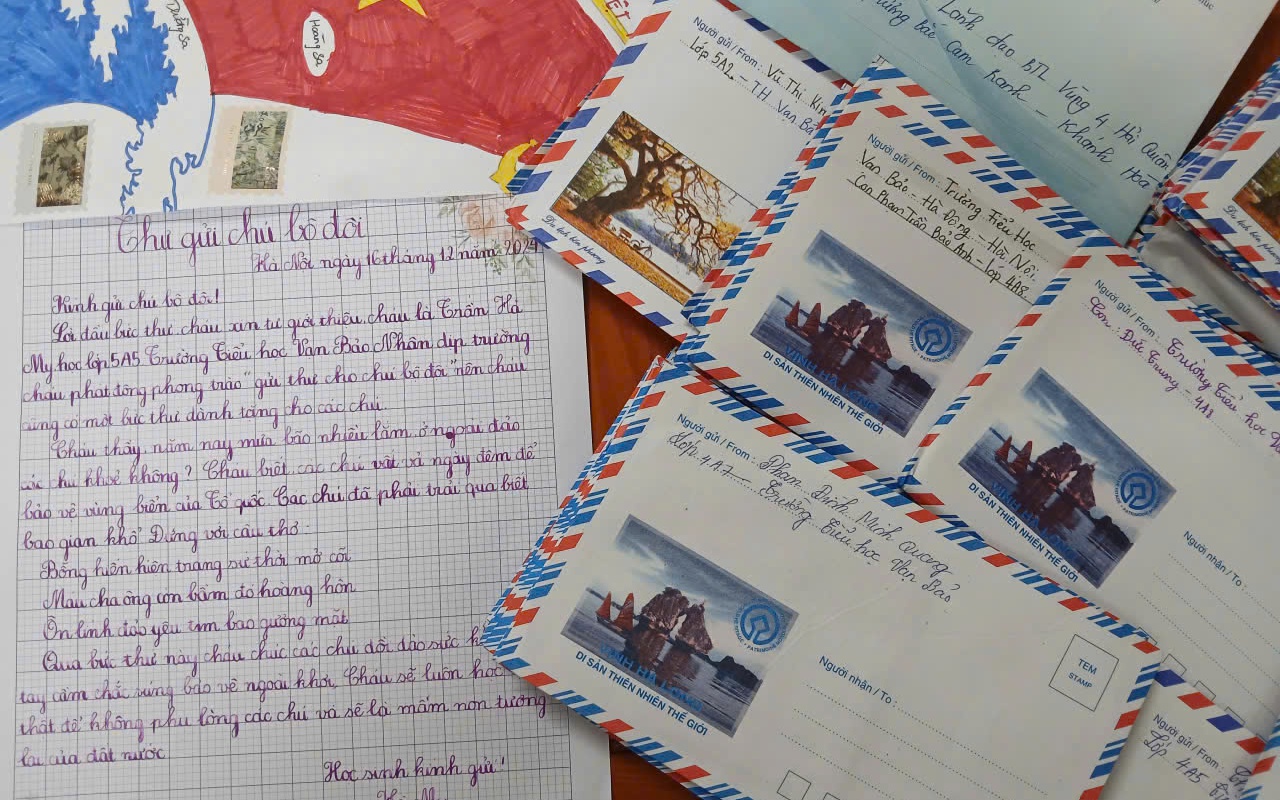 Trường Sa
Hoàng Sa
VIỆT
Thư gửi chú bộ đội
Hà Nội ngày 16 tháng 12 năm 2024
Kính gửi chú bộ đội!
Lời đầu bức thư cháu xin tự giới thiệu, cháu là Trần Hà
My học lớp 5A5 Trường Tiểu học Văn Bảo Nhân dịp trường
cháu phát động phong trào "gửi thư cho chú bộ đội" nên cháu
cũng có một bức thư dành tặng cho các chú.
Cháu thấy, năm nay mưa bão nhiều lắm, ở ngoài đảo
các chú khoẻ không? Cháu biết các chú vất vả ngày đêm để
bảo vệ vùng biển của Tổ quốc. Các chú đã phải trải qua biết
bao gian khổ Đứng với câu thơ:
Bỗng hiển hiện trang sử thời mở cõi
Máu cha ông còn bầm đỏ hoàng hôn
Ôn linh đảo yêu tim bao gương mặt
Qua bức thư này cháu chúc các chú dồi dào sức
tay cầm chắc súng bảo vệ ngoài khơi. Cháu sẽ luôn học
thật để không phụ lòng các chú và sẽ là mầm non tương
lai của đất nước
Học sinh kính gửi!
Người gửi / From : Vũ Thị Kim
Lớp 5A2 - T.H Vạn Bảo
Du lịch bốn phương
Lãnh đạo BTL Vùng 4 Hải Quân
bắc Cam Ranh - Khánh Hoà
Người gửi / From : Trường Tiểu Học
Vạn Bảo - Hà Đông - Hà Nội.
Con Phạm Trần Bảo Anh - lớp 4A8.
VỊNH HẠ LONG
DI SẢN THIÊN NHIÊN THẾ GIỚI
Người gửi / From : Trường Tiểu học
Con : Đức Trung - 4A8
VỊNH HẠ LONG
DI SẢN THIÊN NHIÊN THẾ GIỚI
Người nhận / To :
Người gửi / From : Phan Đình Minh Quang
Lớp 4A7 - Trường Tiểu học Vạn Bảo
VỊNH HẠ LONG
DI SẢN THIÊN NHIÊN THẾ GIỚI
Người nhận / To :
TEM
STAMP
Người gửi / From :
Lớp 4A5